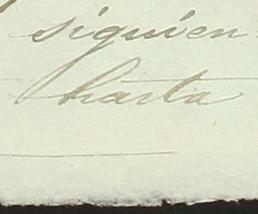 siguien
hasta